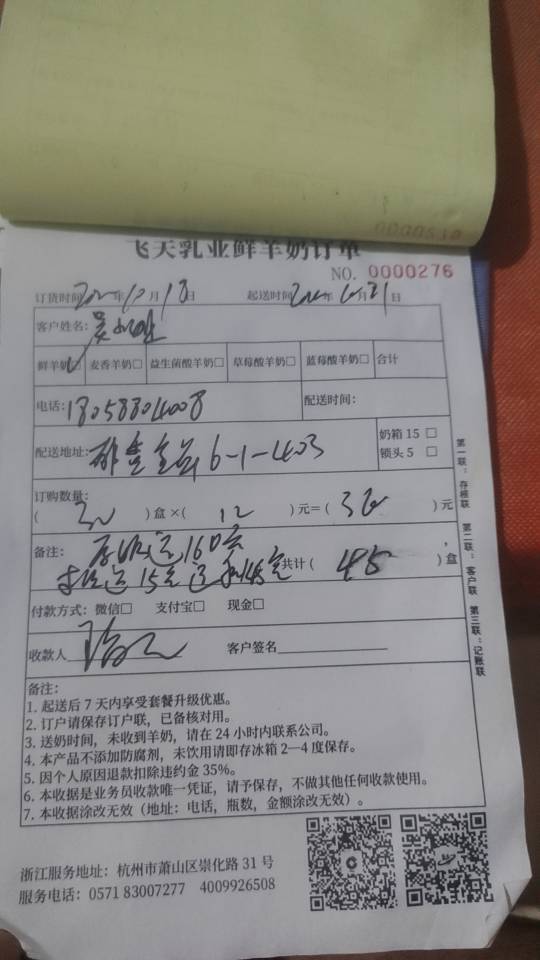 0000510
飞天乳业鲜羊奶订单
NO. 0000276
订货时间 年10月18日 起送时间 年10月21日
客户姓名:吴
鲜羊奶□ 麦香羊奶□ 益生菌酸羊奶□ 草莓酸羊奶□ 蓝莓酸羊奶□ 合计
电话:18058804008 配送时间:
配送地址: 6-1-403 奶箱 15 □
锁头 5 □
订购数量:
( 30 )盒×( 12 )元=( 360 )元
备注: 送160元
送15元送 共计( 45 )盒
付款方式:微信□ 支付宝□ 现金□
收款人 客户签名
第一联:存根联 第二联:客户联 第三联:记账联
备注:
1. 起送后 7 天内享受套餐升级优惠。
2. 订户请保存订户联,已备核对用。
3. 送奶时间,未收到羊奶,请在 24 小时内联系公司。
4. 本产品不添加防腐剂,未饮用请即存冰箱 2—4 度保存。
5. 因个人原因退款扣除违约金 35%。
6. 本收据是业务员收款唯一凭证,请予保存,不做其他任何收款使用。
7. 本收据涂改无效(地址:电话,瓶数,金额涂改无效)。
浙江服务地址:杭州市萧山区崇化路 31 号
服务电话:0571 83007277 4009926508